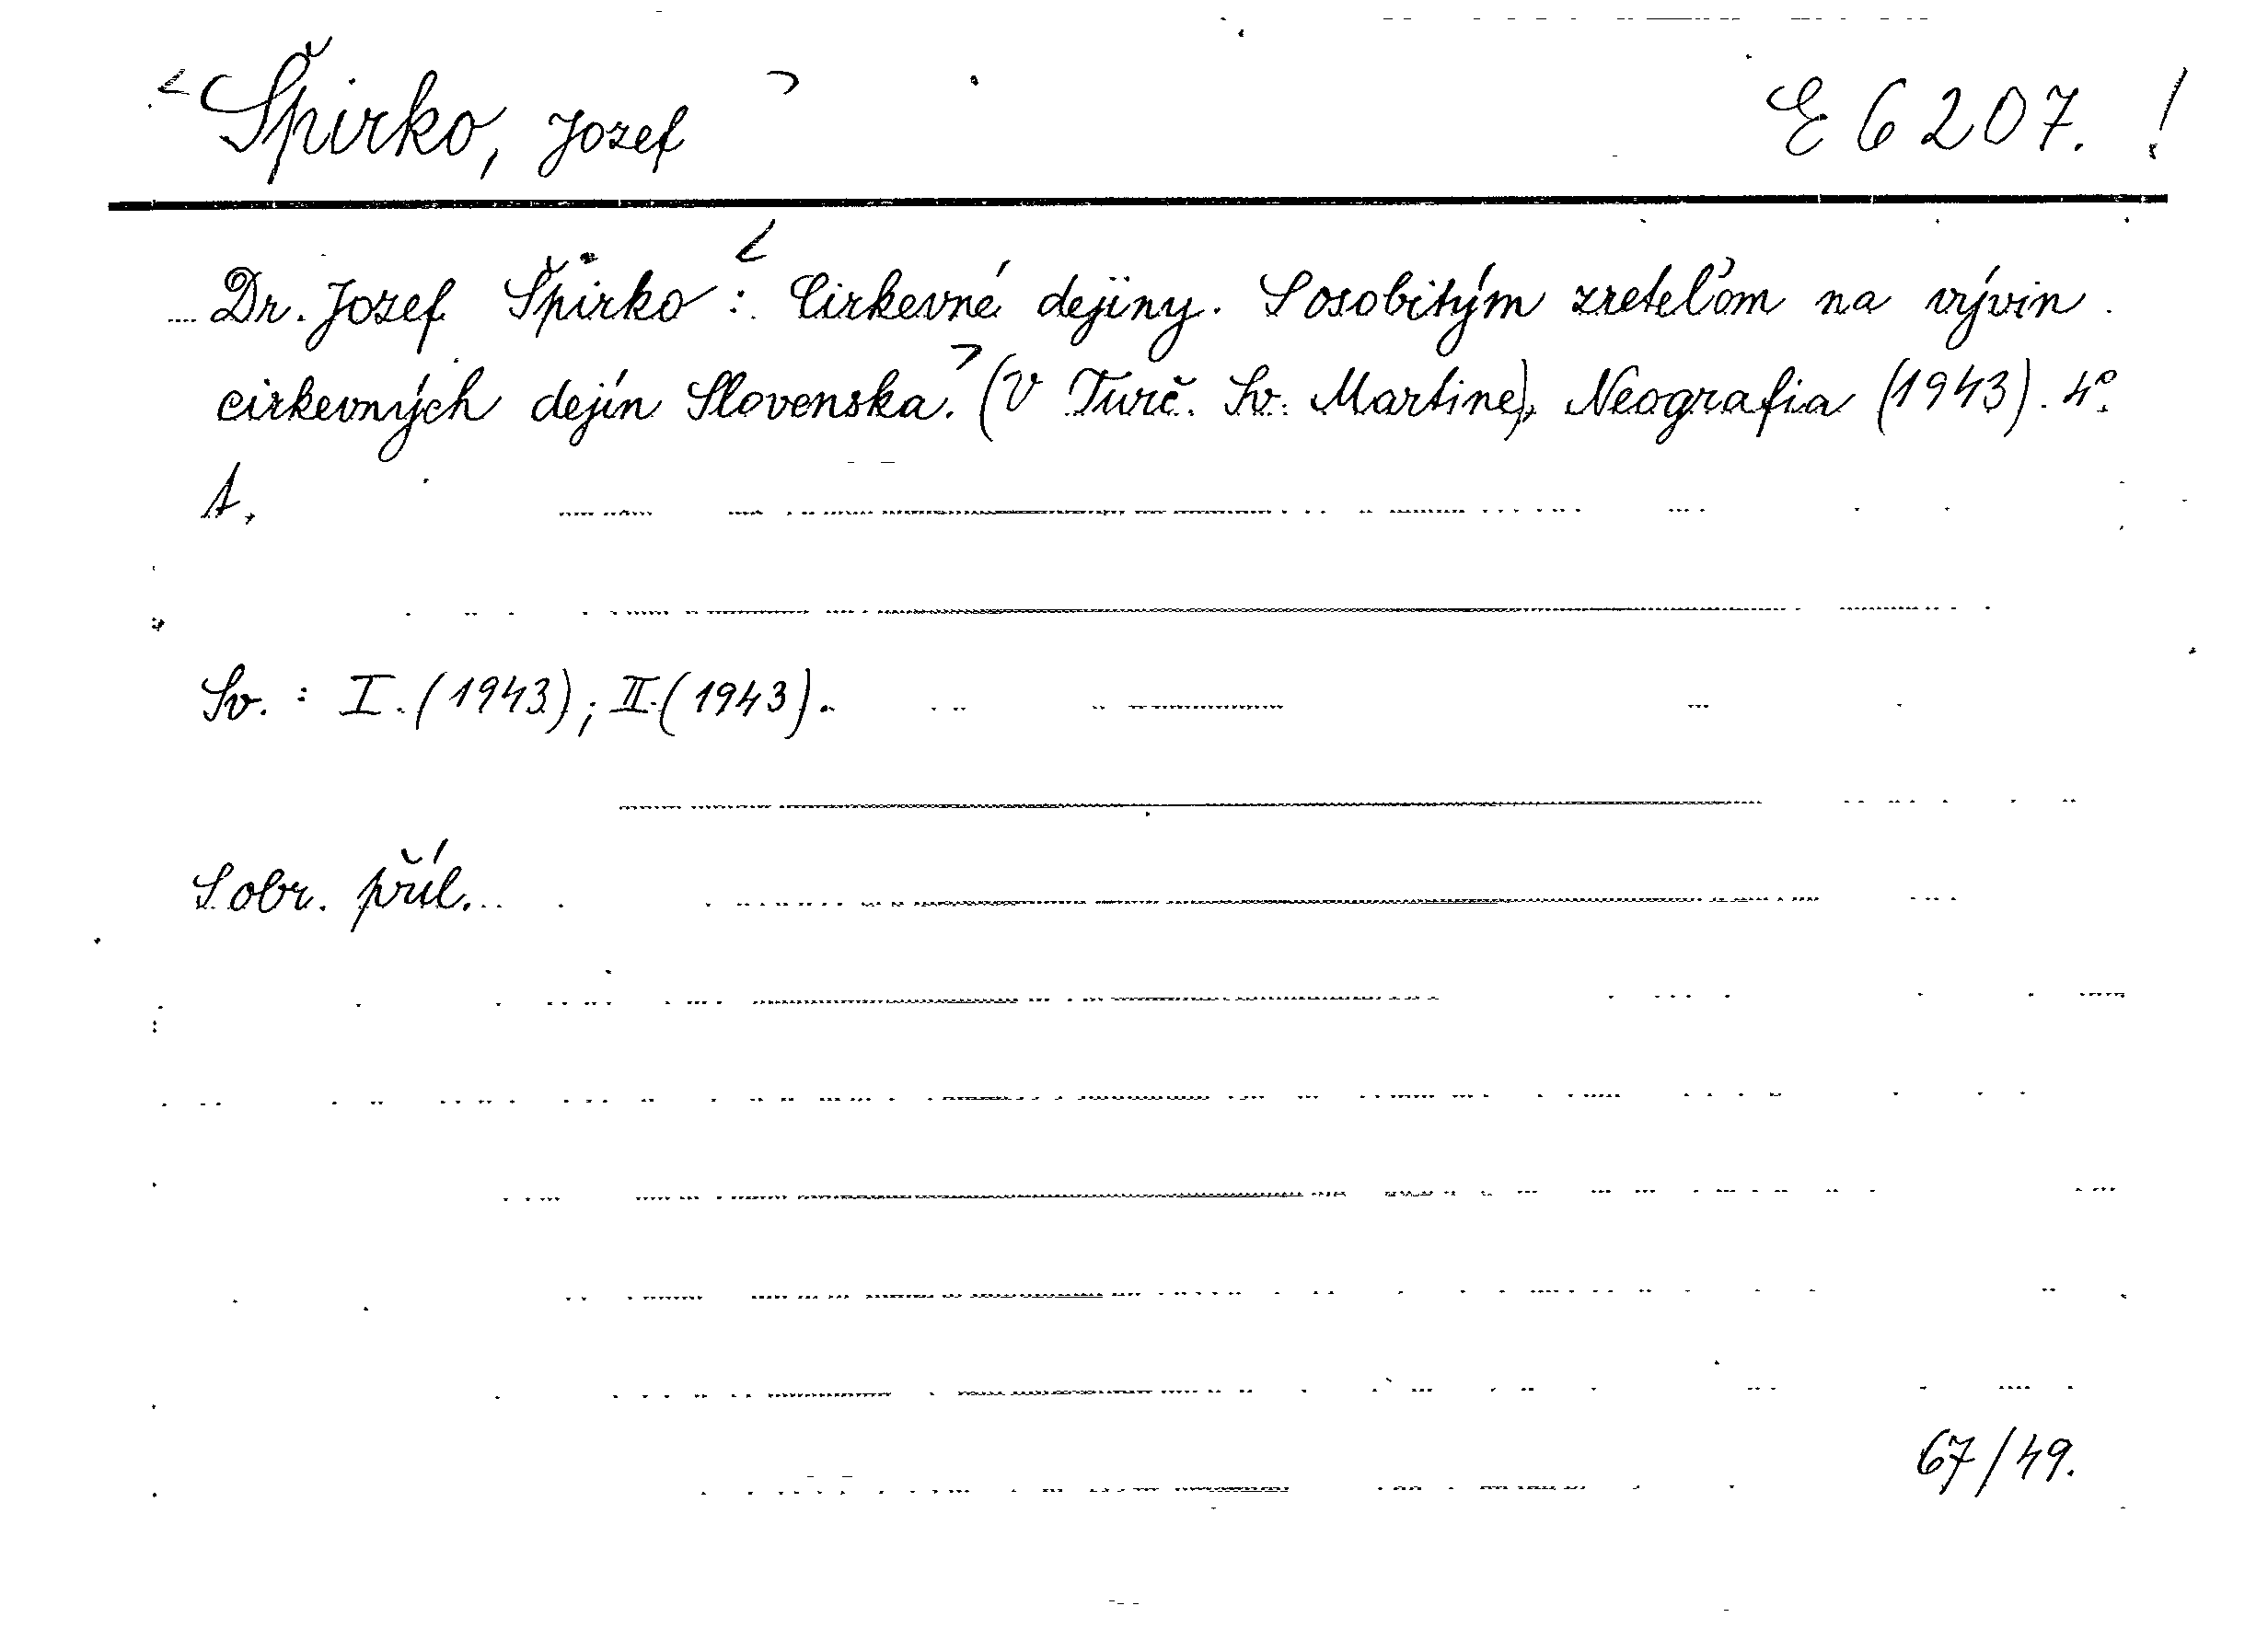 Špirko, Jozef E 6207. !
Dr. Jozef Špirko: Cirkevné dejiny. S osobitým zreteľom na vývin
cirkevných dejín Slovenska. (V Turč. Sv. Martine), Neografia (1943). 4°.
A.
Sv. : I. (1943); II. (1943).
S obr. příl.
67/49.